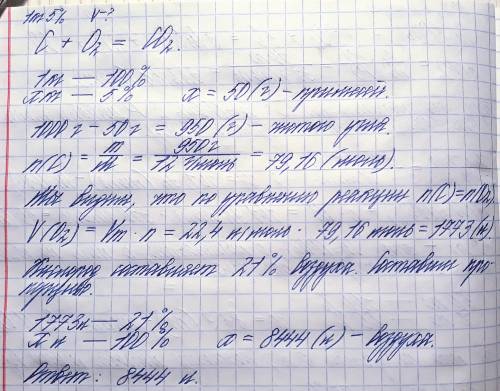 1m 5% V-?
C + O₂ = CO₂.
1кг — 100%
xкг — 5% x = 50 (г) - примесей.
1000г - 50г = 950 (г) - чистого угля.
n(C) = m/M = 950г/12 г/моль = 79,16 (моль).
Мы видим, что по уравнению реакции n(C)=n(O₂).
V(O₂) = Vm · n = 22,4 л/моль · 79,16 моль = 1773 (л).
Кислород составляет 21% воздуха. Составим про-
порцию.
1773л — 21%
x л — 100% x = 8444 (л) - воздуха.
Ответ: 8444 л.